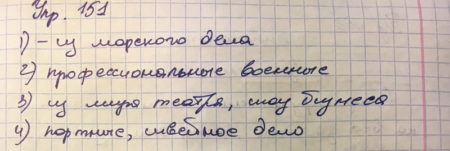 Упр. 151
1) – из морского дела
2) профессиональные военные
3) из мира театра, шоу бизнеса
4) портные, швейное дело